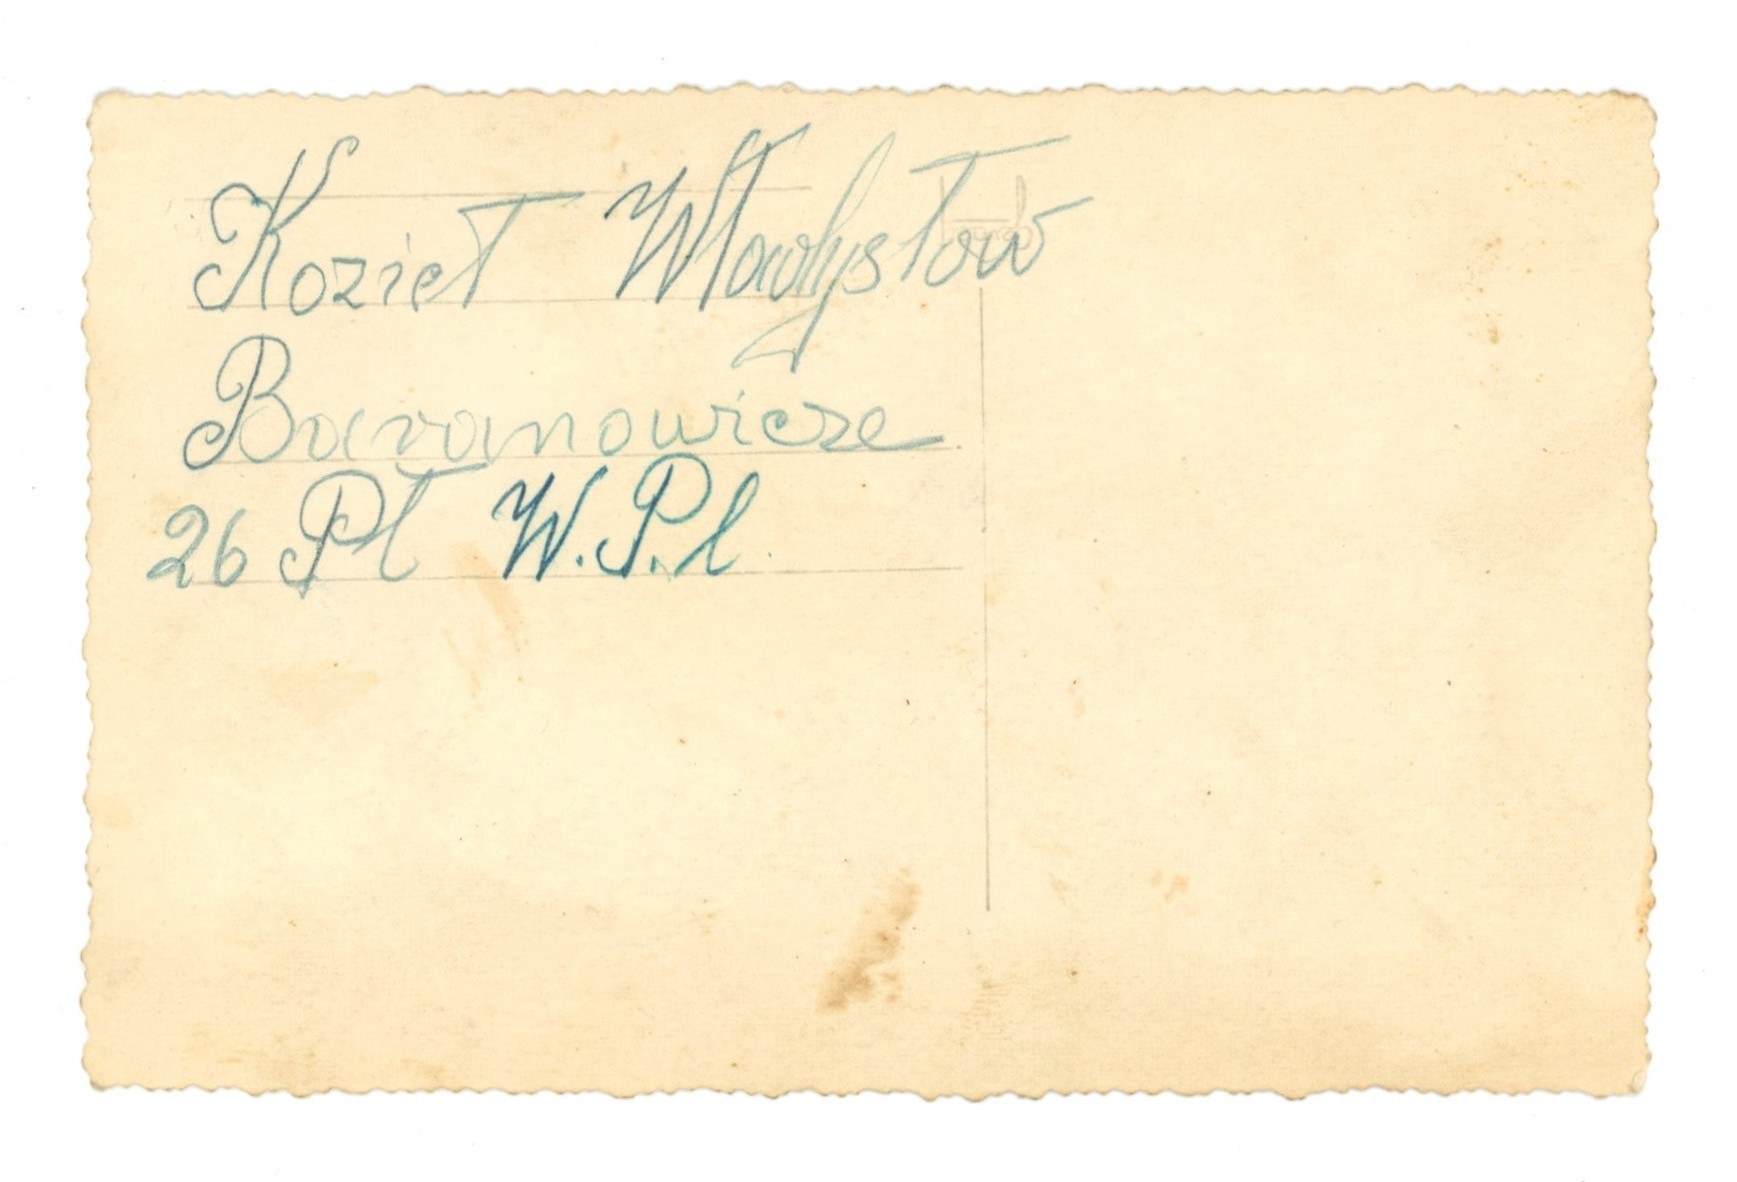 Kozieł Władysław
Baranowicze
26 Pł W.P.l.